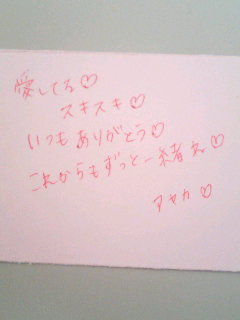 愛してる♡
スキスキ♡
いつもありがとう♡
これからもずっと一緒ネ♡
アヤカ♡